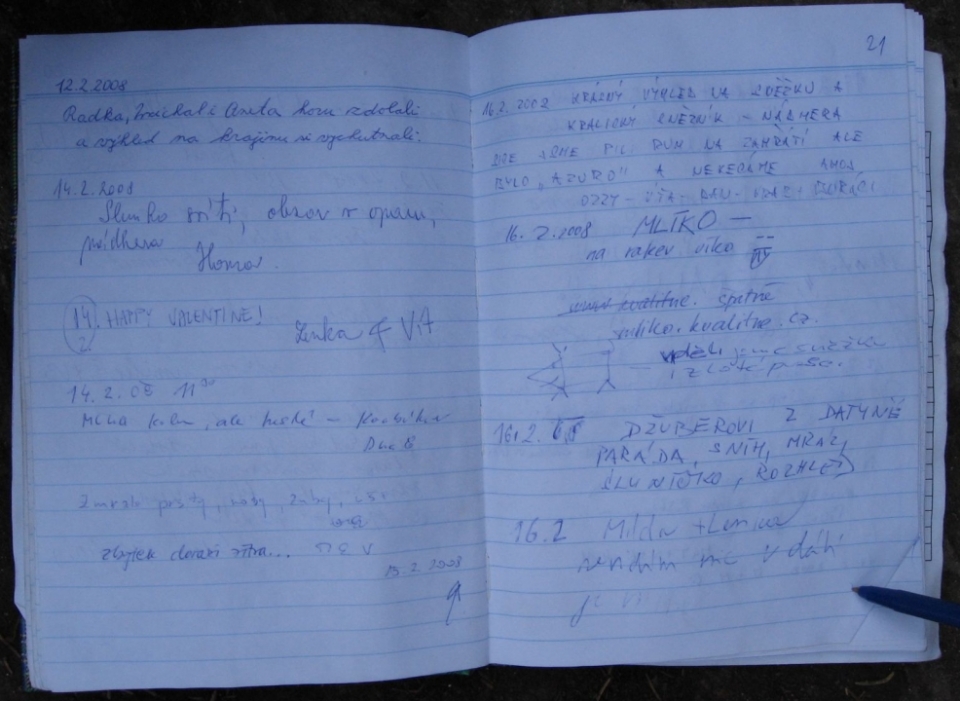 12.2.2008
Radka, Michal i Aneta horu zdolali
a výhled na krajinu si vychutnali.
14.2.2008
Slunko svítí, obzor v oparu,
nádhera
Honza.
14. HAPPY VALENTINE!
2
Lenka & VíŤA
14. 2. 08 11⁰⁰
Mlha kolem, ale hezké –
Zmrzlé prsty, nohy, zuby,
zbytek dorazí zítra...
15.2.2008
21
16.2.2008 KRÁSNÝ VÝHLED NA SNĚŽKU A
KRALICKÝ SNĚŽNÍK - NÁDHERA
SME PIL RUM NA ZAHŘÁTÍ ALE
BYLO „AZURO" A NEKECÁME AHOJ
OZZY - VÍŤA -
16.2.2008 MLÍKO –
na rakev víko
www.kvalitne. špatně
mliko.kvalitne.cz.
– viděli jsme sněžku
16.2. 08 DŽUBEROVI Z DATYNĚ
PARÁDA, SNÍH, MRÁZ,
SLUNÍČKO, ROZHLED
16.2 Milda + Lenka
nevidím nic v dáli
je